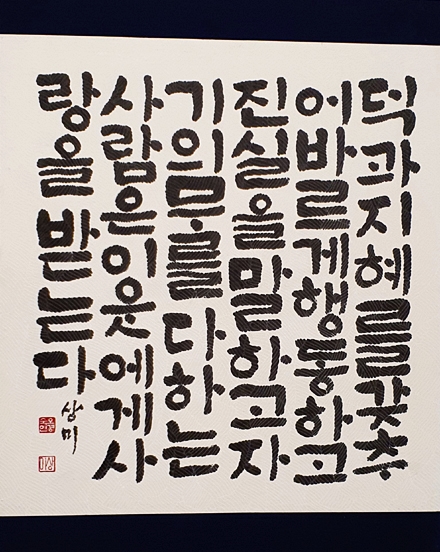 덕과지혜를갖추
어바르게행동하고
진실을말하고자
기의무를다하는
사람은이웃에게사
랑을받는다
상미